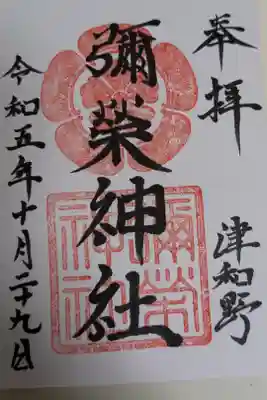 奉拝
津和野
彌榮神社
彌榮神社
令和五年十月二十九日